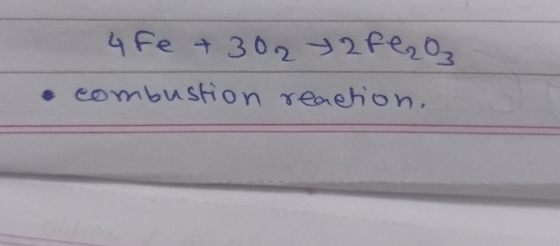 4Fe + 3O₂ → 2Fe₂O₃
• combustion reaction.